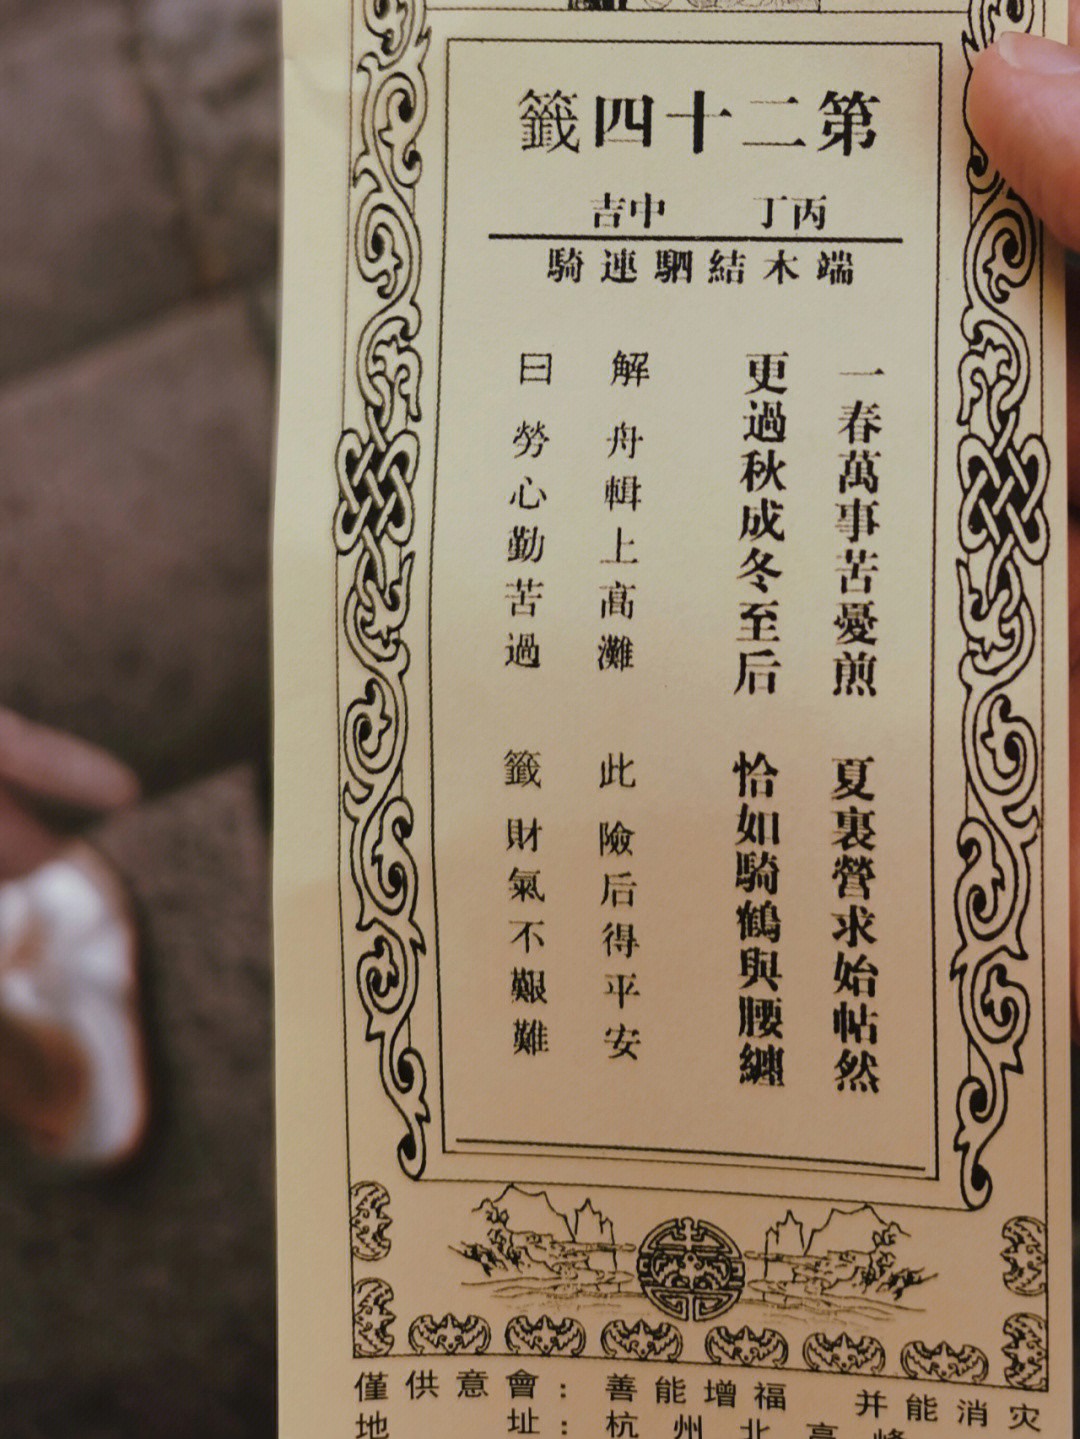 第二十四籤
丙丁 中吉
端木結駟連騎
一春萬事苦憂煎 夏裏營求始帖然
更過秋成冬至后 恰如騎鶴與腰纏
解 舟輯上高灘 此險后得平安
曰 勞心勤苦過 籤財氣不艱難
僅供意會：善能增福 并能消灾
地 址：杭州北高峰